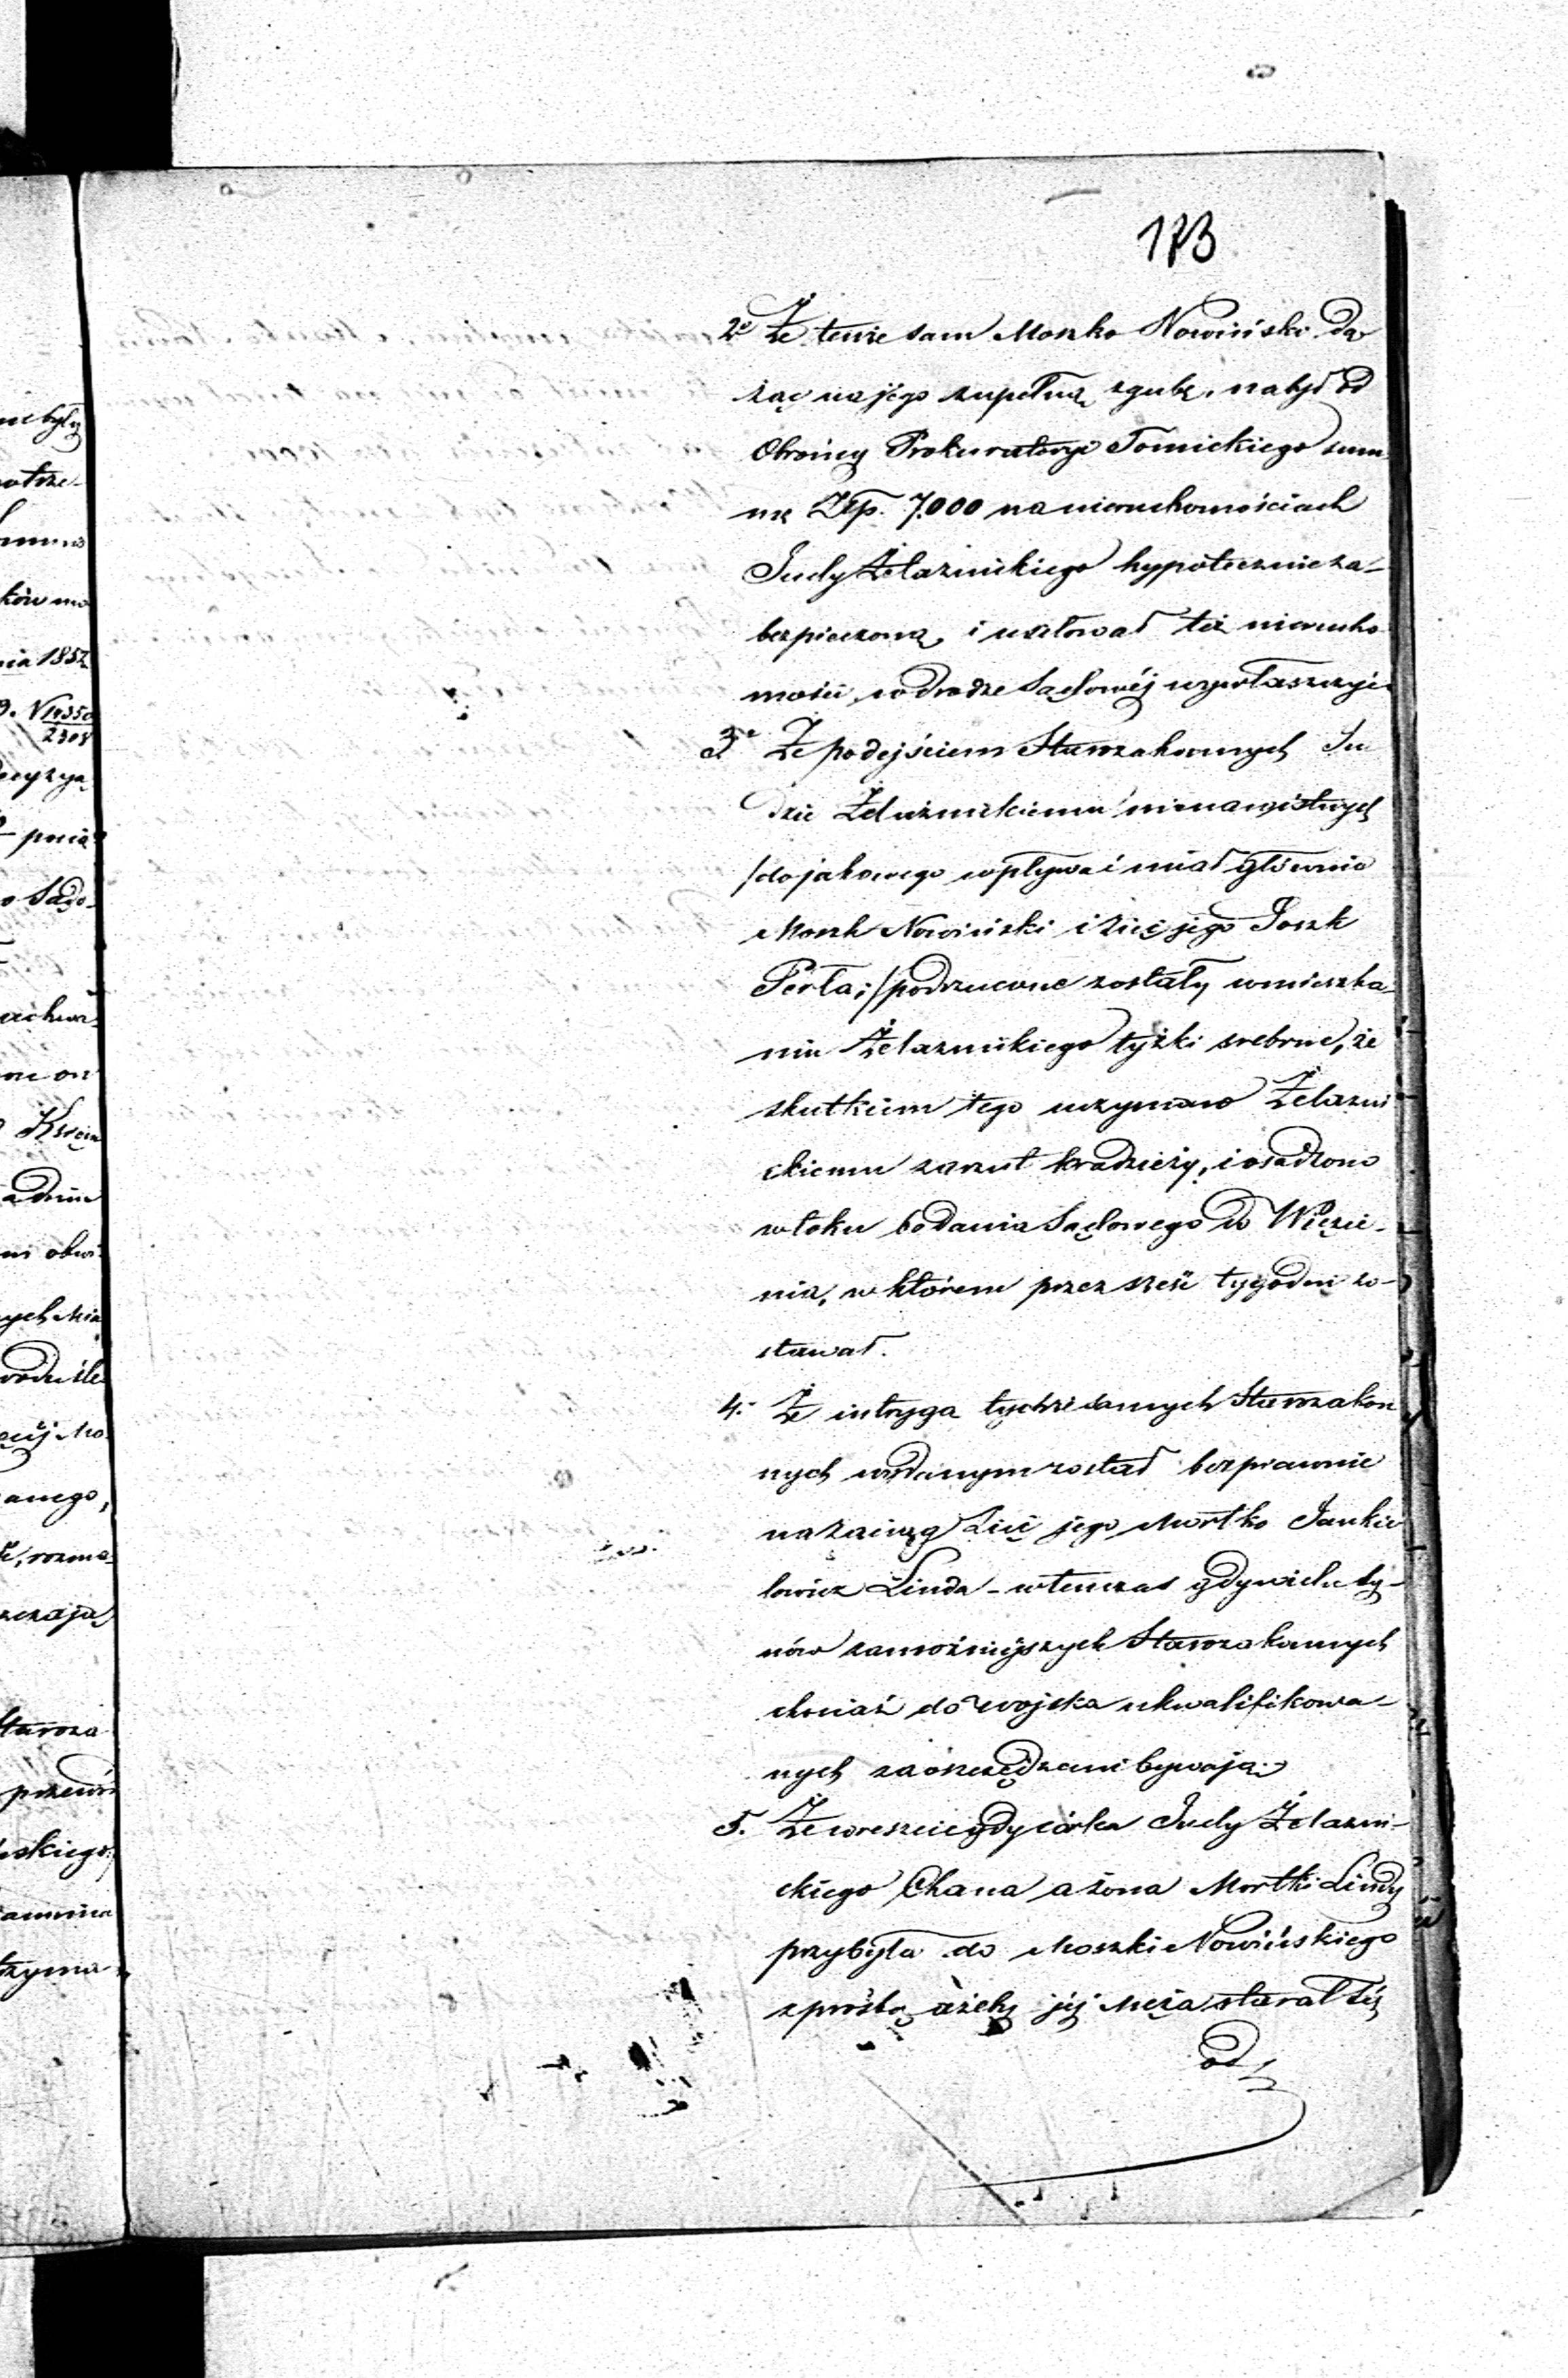 173
ne były
potrze-
ków mo
nia 1852
N 14350
2308
decyzya
pocią
o Sądo-
ne on
adnie
ni obwi-
nych Mia
anego,
, rozma-
szczają
Staroza
przewó
ńskiego
trzyma
2e Że tenże sam Moszko Nowiński dą-
żąc na jego zupełną zgubę, nabył od
Obrońcy Prokuratoryi Tomickiego sum
mę Złp. 7000 na nieruchomościach
Judy Żelaznickiego hypotecznie za-
bezpieczoną, i usiłował też nierucho
mości w drodze Sądowéj wywłaszczyć.
3e Że podejściem Starozakonnych Ju
dzie Żelaznickiemu nienawistnych
/do jakowego wpływać miał głównie
Moszk Nowiński i Zięć jego Joszk
Perła;/ podrzucone zostały w mieszka-
niu Żelaznickiego łyżki srebrne, że
skutkiem tego uczyniono Żelazni
ckiemu zarzut kradzieży, i osadzono
w toku badania Sądowego do Więzie-
nia, w którem przez sześć tygodni zo-
stawał.
4. Że intrygą tychże samych Starozakon
nych wydanym został bezprawnie
na Zaciąg Zięć jego Mortko Jankie
lowicz Linda - wtenczas gdy wielu sy-
nów zamożniejszych Starozakonnych
chociaż do wojska ukwalifikowa-
nych zaoszczędzani bywają.
5. Że wreszcie gdy córka Judy Żelazni-
ckiego Chana a żona Mortki Lindy
przybyła do Moszki Nowińskiego
z prośbą ażeby jéj Męża starał się
od